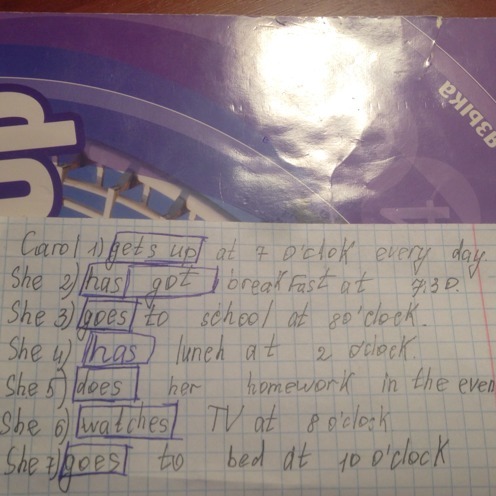 UP
языка
Carol 1) gets up at 7 o'clok every day.
She 2) has got breakfast at 7:30.
She 3) goes to school at 8 o'clock.
She 4) has lunch at 2 o'clock.
She 5) does her homework in the even
She 6) watches TV at 8 o'clock
She 7) goes to bed at 10 o'clock